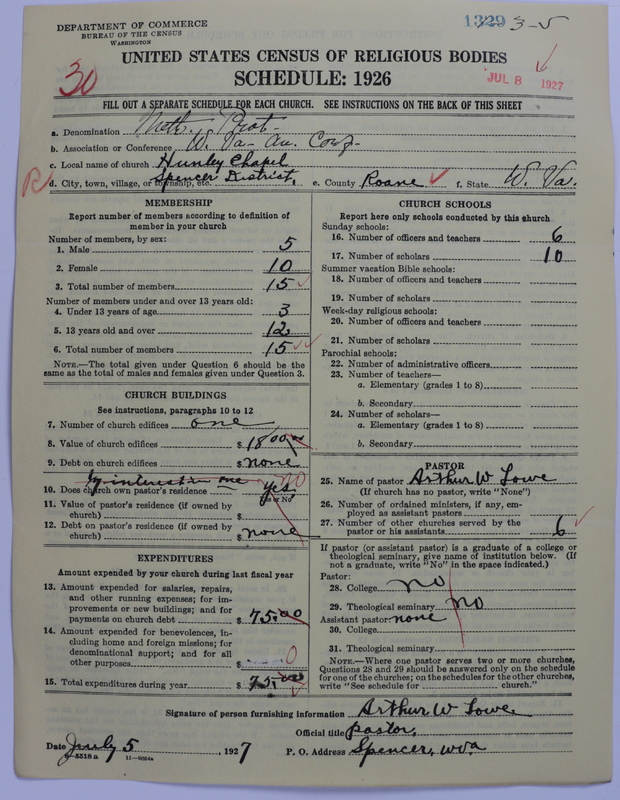 DEPARTMENT OF COMMERCE
BUREAU OF THE CENSUS
WASHINGTON
1329 3-5
UNITED STATES CENSUS OF RELIGIOUS BODIES
SCHEDULE: 1926
30
JUL 8 1927
FILL OUT A SEPARATE SCHEDULE FOR EACH CHURCH. SEE INSTRUCTIONS ON THE BACK OF THIS SHEET
a. Denomination Meth. Prot.
b. Association or Conference W. Va. An. Conf.
c. Local name of church Hunley Chapel
R
d. City, town, village, or township, etc. Spencer District, e. County Roane f. State W. Va.
MEMBERSHIP
Report number of members according to definition of
member in your church
Number of members, by sex:
1. Male 5
2. Female 10
3. Total number of members 15
Number of members under and over 13 years old:
4. Under 13 years of age 3
5. 13 years old and over 12
6. Total number of members 15
NOTE.—The total given under Question 6 should be
same as the total of males and females given under Question 3.
CHURCH BUILDINGS
See instructions, paragraphs 10 to 12
7. Number of church edifices one
8. Value of church edifices $ 1800.00
9. Debt on church edifices $ none
1/7 interest in one no
10. Does church own pastor's residence yes
(Yes or No)
11. Value of pastor's residence (if owned by
church) $
12. Debt on pastor's residence (if owned by
church) $ none
EXPENDITURES
Amount expended by your church during last fiscal year
13. Amount expended for salaries, repairs,
and other running expenses; for im-
provements or new buildings; and for
payments on church debt $ 75.00
14. Amount expended for benevolences, in-
cluding home and foreign missions; for
denominational support; and for all
other purposes $ 0
15. Total expenditures during year $ 75.00
CHURCH SCHOOLS
Report here only schools conducted by this church
Sunday schools:
16. Number of officers and teachers 6
17. Number of scholars 10
Summer vacation Bible schools:
18. Number of officers and teachers
19. Number of scholars
Week-day religious schools:
20. Number of officers and teachers
21. Number of scholars
Parochial schools:
22. Number of administrative officers
23. Number of teachers—
a. Elementary (grades 1 to 8)
b. Secondary
24. Number of scholars—
a. Elementary (grades 1 to 8)
b. Secondary
PASTOR
25. Name of pastor Arthur W Lowe
(If church has no pastor, write "None")
26. Number of ordained ministers, if any, em-
ployed as assistant pastors
27. Number of other churches served by the
pastor or his assistants 6
If pastor (or assistant pastor) is a graduate of a college or
theological seminary, give name of institution below. (If
not a graduate, write "No" in the space indicated.)
Pastor:
28. College no
29. Theological seminary no
Assistant pastor: none
30. College
31. Theological seminary
NOTE.—Where one pastor serves two or more churches,
Questions 28 and 29 should be answered only on the schedule
for one of the churches; on the schedules for the other churches,
write "See schedule for church."
Signature of person furnishing information Arthur W Lowe
Official title pastor,
Date July 5, 1927 P. O. Address Spencer, W Va
8-5518 a 11-9054a